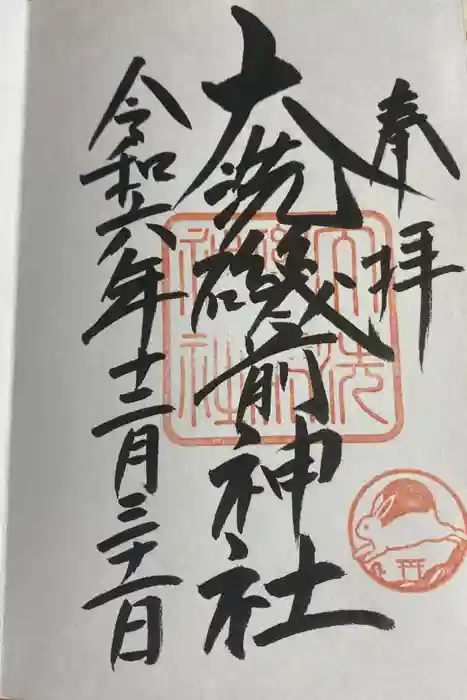 奉拝
大洗磯前神社
令和六年十二月三十一日
大洗磯前神社